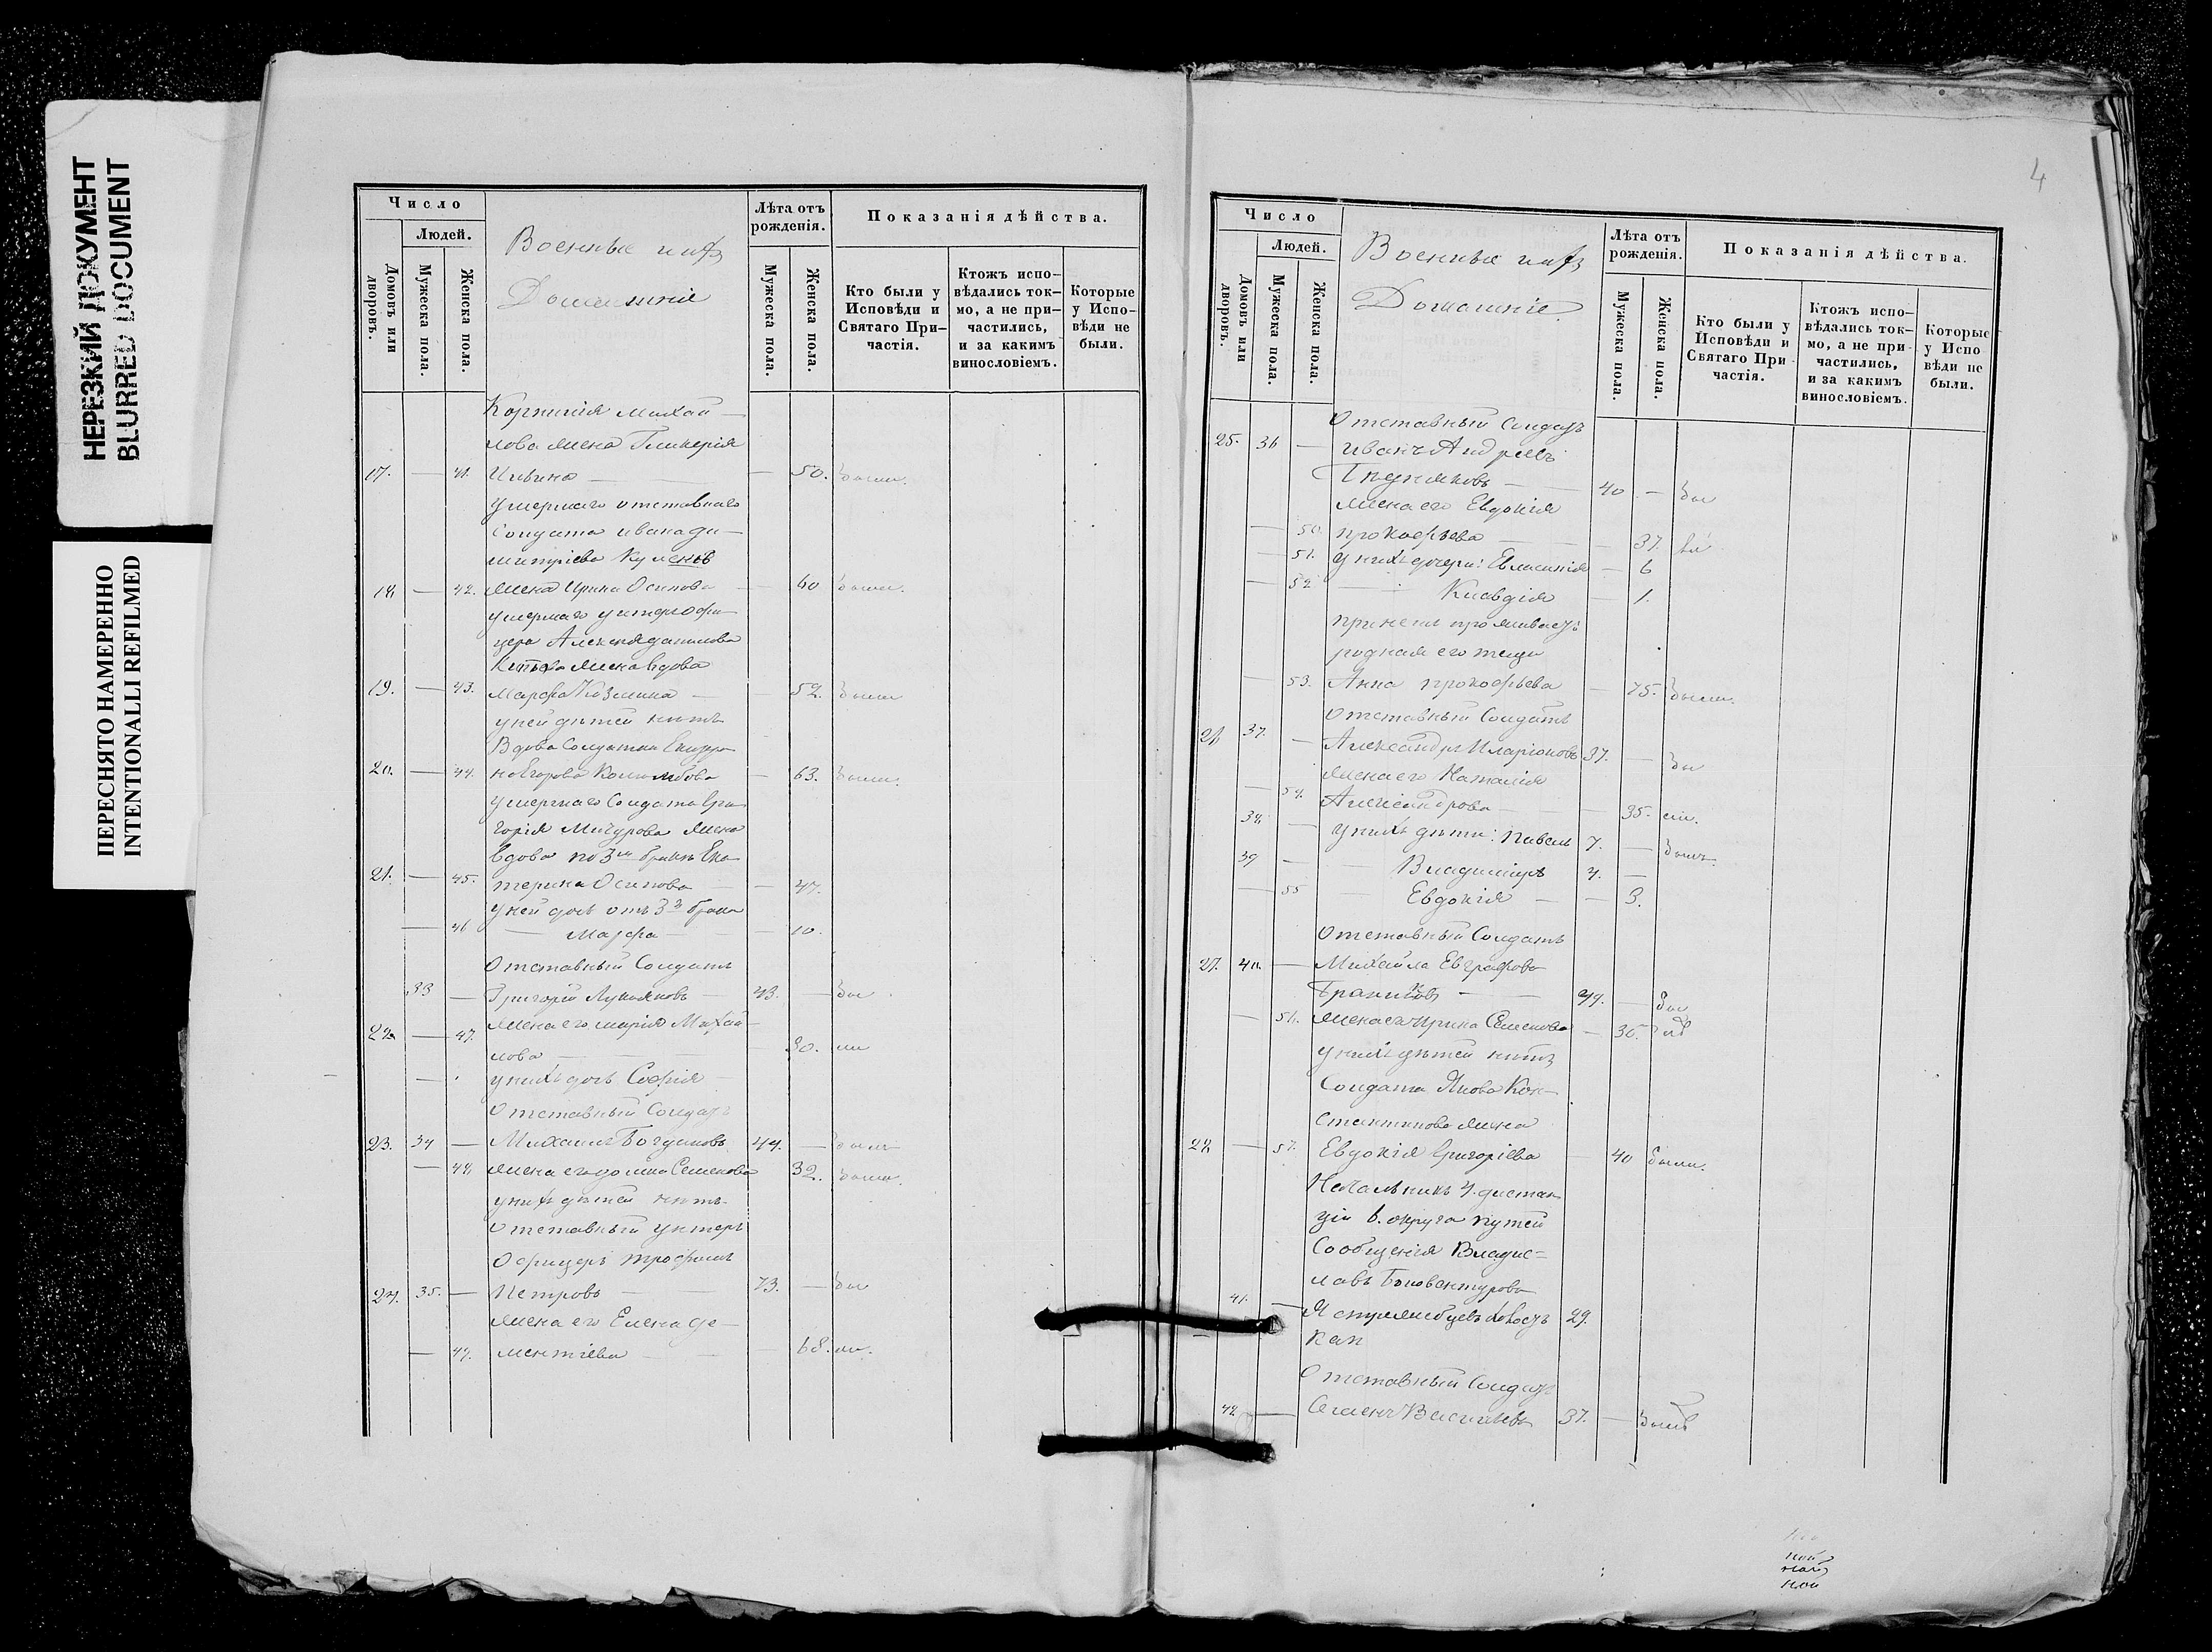 НЕРЕЗКИЙ ДОКУМЕНТ
BLURRED DOCUMENT
ПЕРЕСНЯТО НАМЕРЕННО
INTENTIONALLI REFILMED
Число
Людей.
Домовъ или дворовъ.
Мужеска пола.
Женска пола.
Военные и ихъ
Домашніе
Лѣта отъ рожденія.
Мужеска пола.
Женска пола.
Показанія дѣйства.
Кто были у Исповѣди и Святаго Причастія.
Ктожъ исповѣдались токмо, а не причастились, и за какимъ винословіемъ.
Которые у Исповѣди не были.
Михай
лова жена Гликерія
17. — 41. Ильина — 50. были.
умершаго отставнаго
Солдата Ивана Ди
митріева
18. — 42. жена Ирина Осипова — 60 были.
умершаго унтерофи
цера Алексія Данилова
жена вдова
19. — 43. Марфа Козмина — 52. были
у ней дѣтей нѣтъ
Вдова Солдатка
20. — 44. Егорова — 63. были.
умершаго Солдата Гри
горія Мичурова жена
вдова по 3м бракѣ Ека
21. — 45. терина Осипова — 47.
у ней дочь отъ 3го брака
— 46 — Марфа — 10.
Отставный Солдатъ
33 — Григорій Лукьяновъ — 43. — бы
жена его Марія Михай
22. — 47. лова — 30. ли
у нихъ дочь Софія
Отставный Солдатъ
23. 34 — Михаилъ Богдановъ 44. — былъ
— 48 жена его Семенова 32. были.
у нихъ дѣтей нѣтъ
Отставный унтеръ
Офицеръ Трофимъ
24. 35. — Петровъ — 73. — бы
жена его Елена Де
— 49. ментіева — 68. ли.
4
Число
Людей.
Домовъ или дворовъ.
Мужеска пола.
Женска пола.
Военные и ихъ
Домашніе.
Лѣта отъ рожденія.
Мужеска пола.
Женска пола.
Показанія дѣйства.
Кто были у Исповѣди и Святаго Причастія.
Ктожъ исповѣдались токмо, а не причастились, и за какимъ винословіемъ.
Которые у Исповѣди не были.
Отставный Солдатъ
25. 36 — Иванъ Андреевъ
— 40 — бы
жена его Евдокія
— 50. Прокофьева — 37.
— 51. у нихъ дочери: — 6
— 52 Клавдія — 1.
при немъ проживаетъ
родная его теща
— 53. Анна Прокофьева — 75. были.
Отставный Солдатъ
26 37. — Александръ Иларіоновъ 37. — бы
жена его Наталія
— 54. Александрова — 35. ли.
38. — у нихъ дѣти: Павелъ 7. — былъ.
39 — Владиміръ 4. —
— 55 Евдокія — 3.
Отставный Солдатъ
27. 40. — Михайла Евграфовъ
— 49. — бы
— 56. жена его Ирина Семенова — 36.
у нихъ дѣтей нѣтъ
Солдата Якова Кон
стантинова жена
28 — 57. Евдокія Григоріева — 40 были.
Начальникъ 4. дистан
ціи 6. округа путей
Сообщенія Владис=
лавъ Бонавентурова
41. — 29.
Отставный Солдатъ
42. — Семенъ Васильевъ 37. — былъ